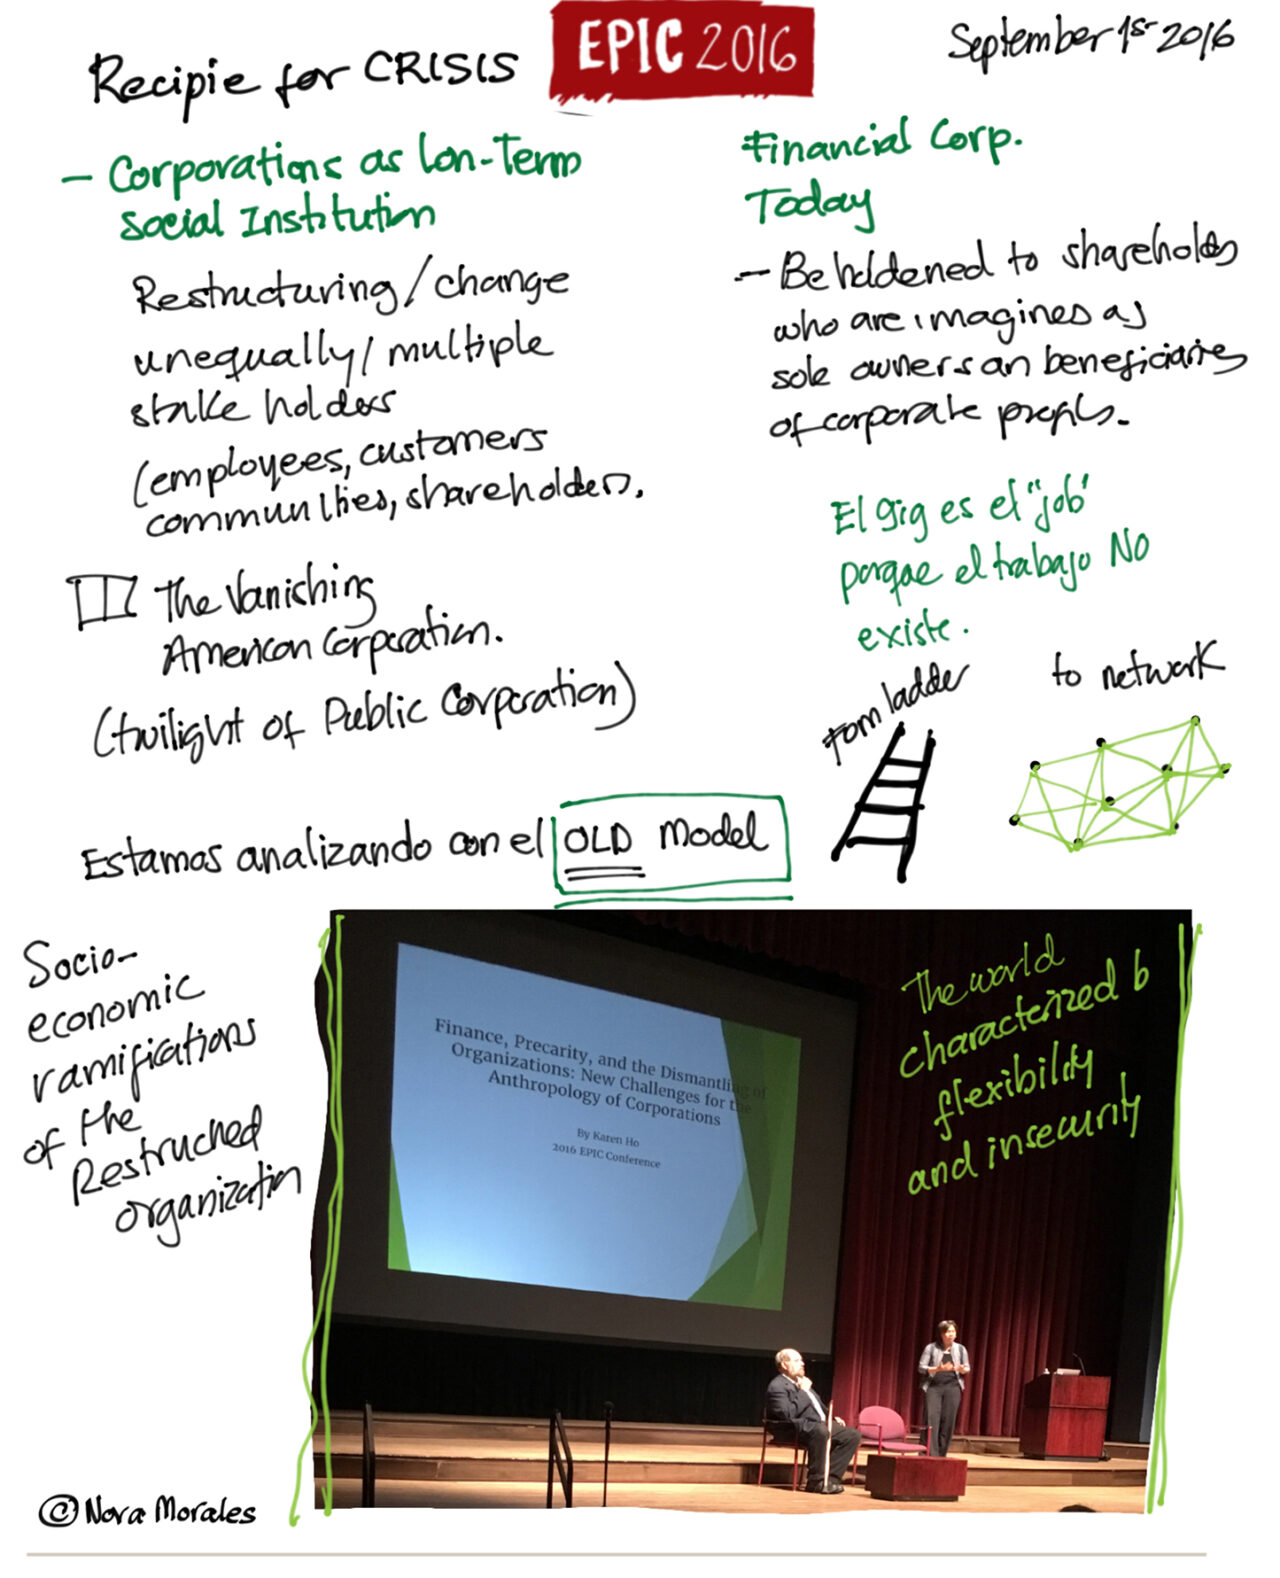 Recipie for CRISIS
EPIC 2016
September 1st 2016
- Corporations as Lon-Term
Social Institution
Restructuring/change
unequally/multiple
stake holders
(employees, customers
communities, shareholders.
The Vanishing
American Corporation.
(twilight of Public Corporation)
Financial Corp.
Today
- Beholdened to shareholders
who are imagines as
sole owners an beneficiaries
of corporate profits.
El gig es el "job"
porque el trabajo NO
existe.
From ladder
to network
Estamos analizando con el OLD Model
Socio-
economic
ramifications
of the
Restruched
organization
Finance, Precarity, and the Dismantling of
Organizations: New Challenges for the
Anthropology of Corporations
By Karen Ho
2016 EPIC Conference
The world
characterized b
flexibility
and insecurity
© Nora Morales